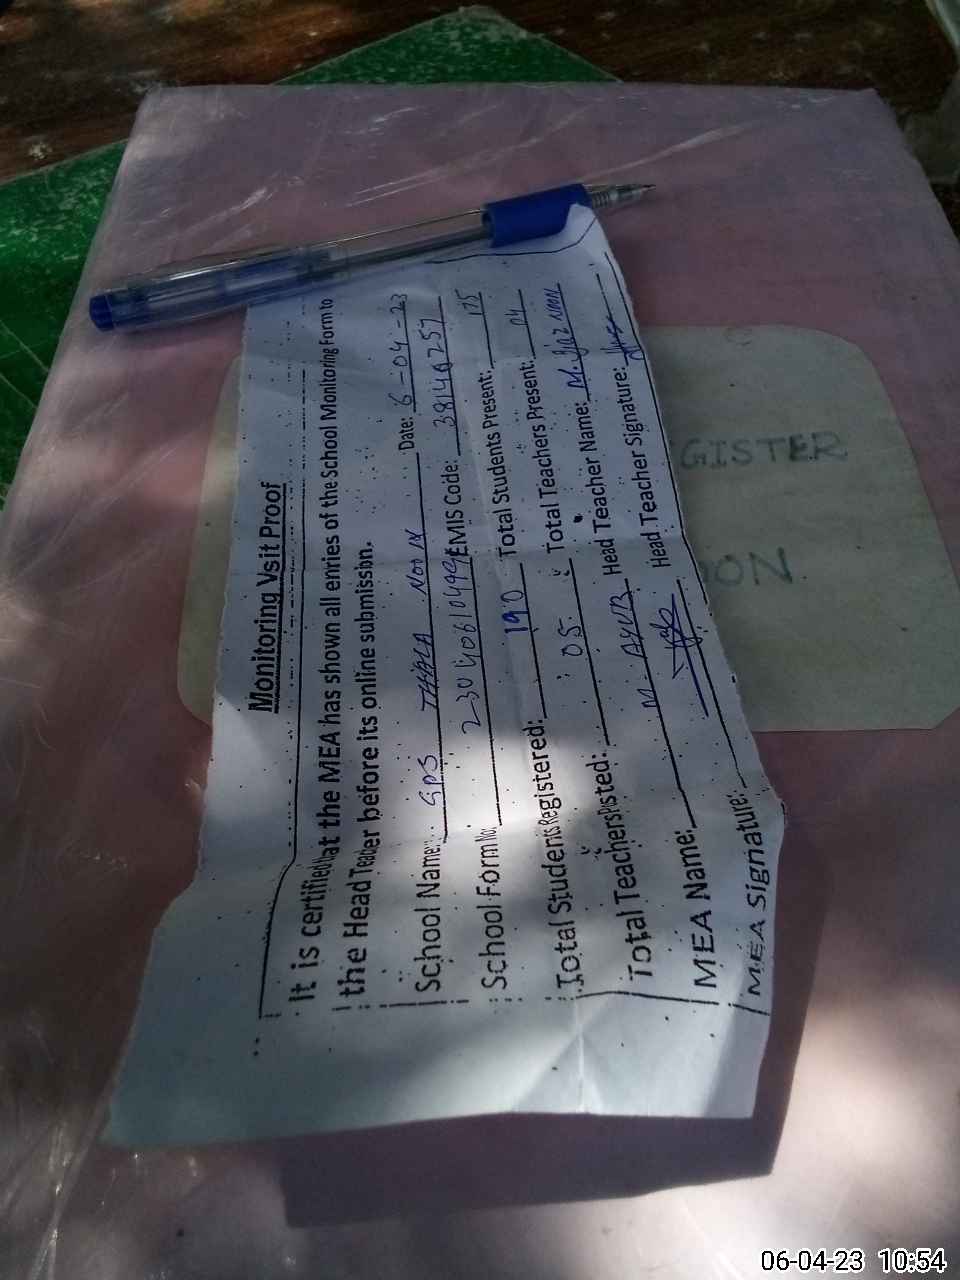 Monitoring Vsit Proof
It is certified that the MEA has shown all enries of the School Monitoring Form to
the Head Teacher before its online submission.
School Name: GPS THALA NOON Date: 6-04-23
School Form No: EMIS Code:
Total Students Registered: 190 Total Students Present: 175
Total Teachers Posted: 05 Total Teachers Present: 04
MEA Name: M. AYUB Head Teacher Name: M. Ijaz NOON
MEA Signature: Head Teacher Signature:
GISTER
OON
06-04-23 10:54